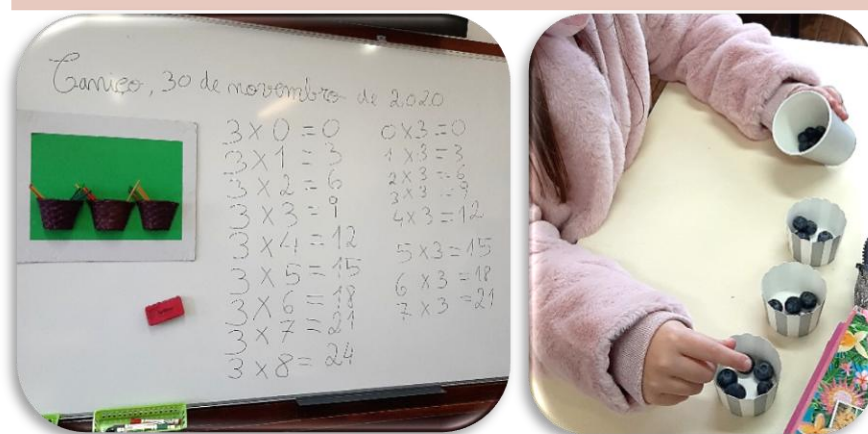 Caniço, 30 de novembro de 2020
3 x 0 = 0
3 x 1 = 3
3 x 2 = 6
3 x 3 = 9
3 x 4 = 12
3 x 5 = 15
3 x 6 = 18
3 x 7 = 21
3 x 8 = 24
0 x 3 = 0
1 x 3 = 3
2 x 3 = 6
3 x 3 = 9
4 x 3 = 12
5 x 3 = 15
6 x 3 = 18
7 x 3 = 21